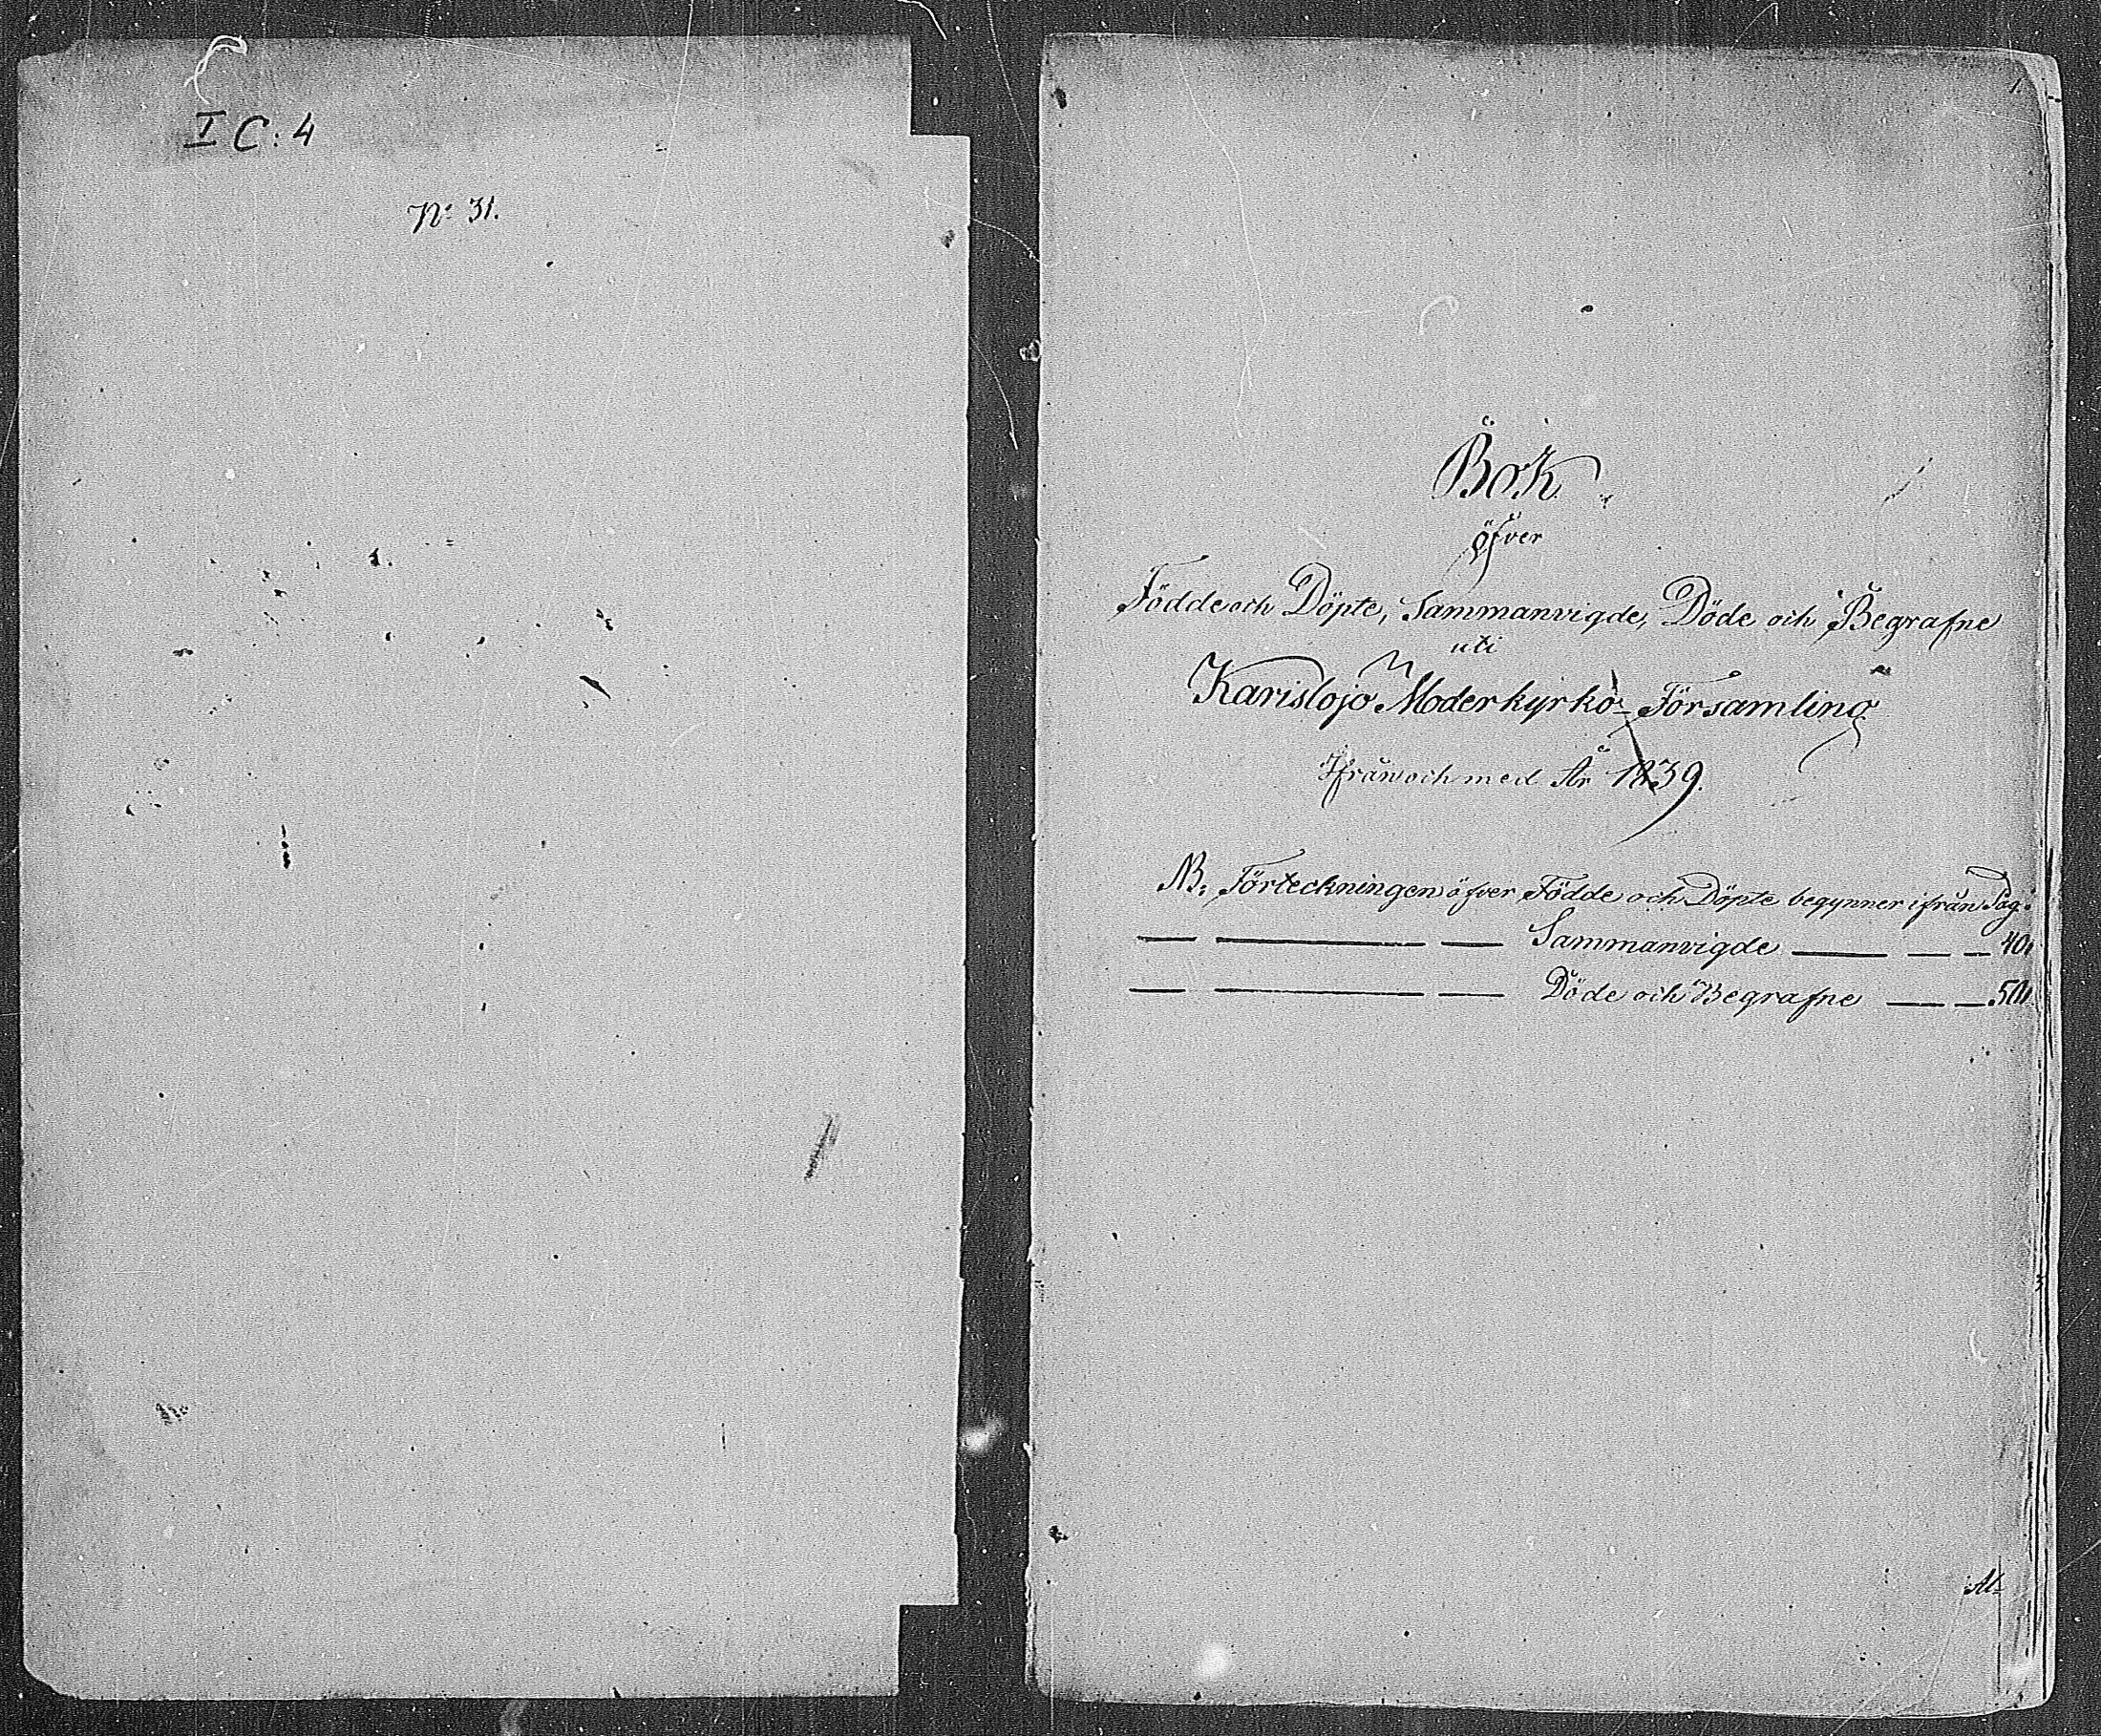 I C: 4
No 31.
1.
Bok
öfver
Födde och Döpte, Sammanvigde, Döde och Begrafne
uti
Karislojo Moderkyrko-Församling
Ifrån och med År 1839.
NB: Förteckningen öfver Födde och Döpte begynner ifrån Pag:
— — — Sammanvigde — — — 401
— — — Döde och Begrafne — — 501